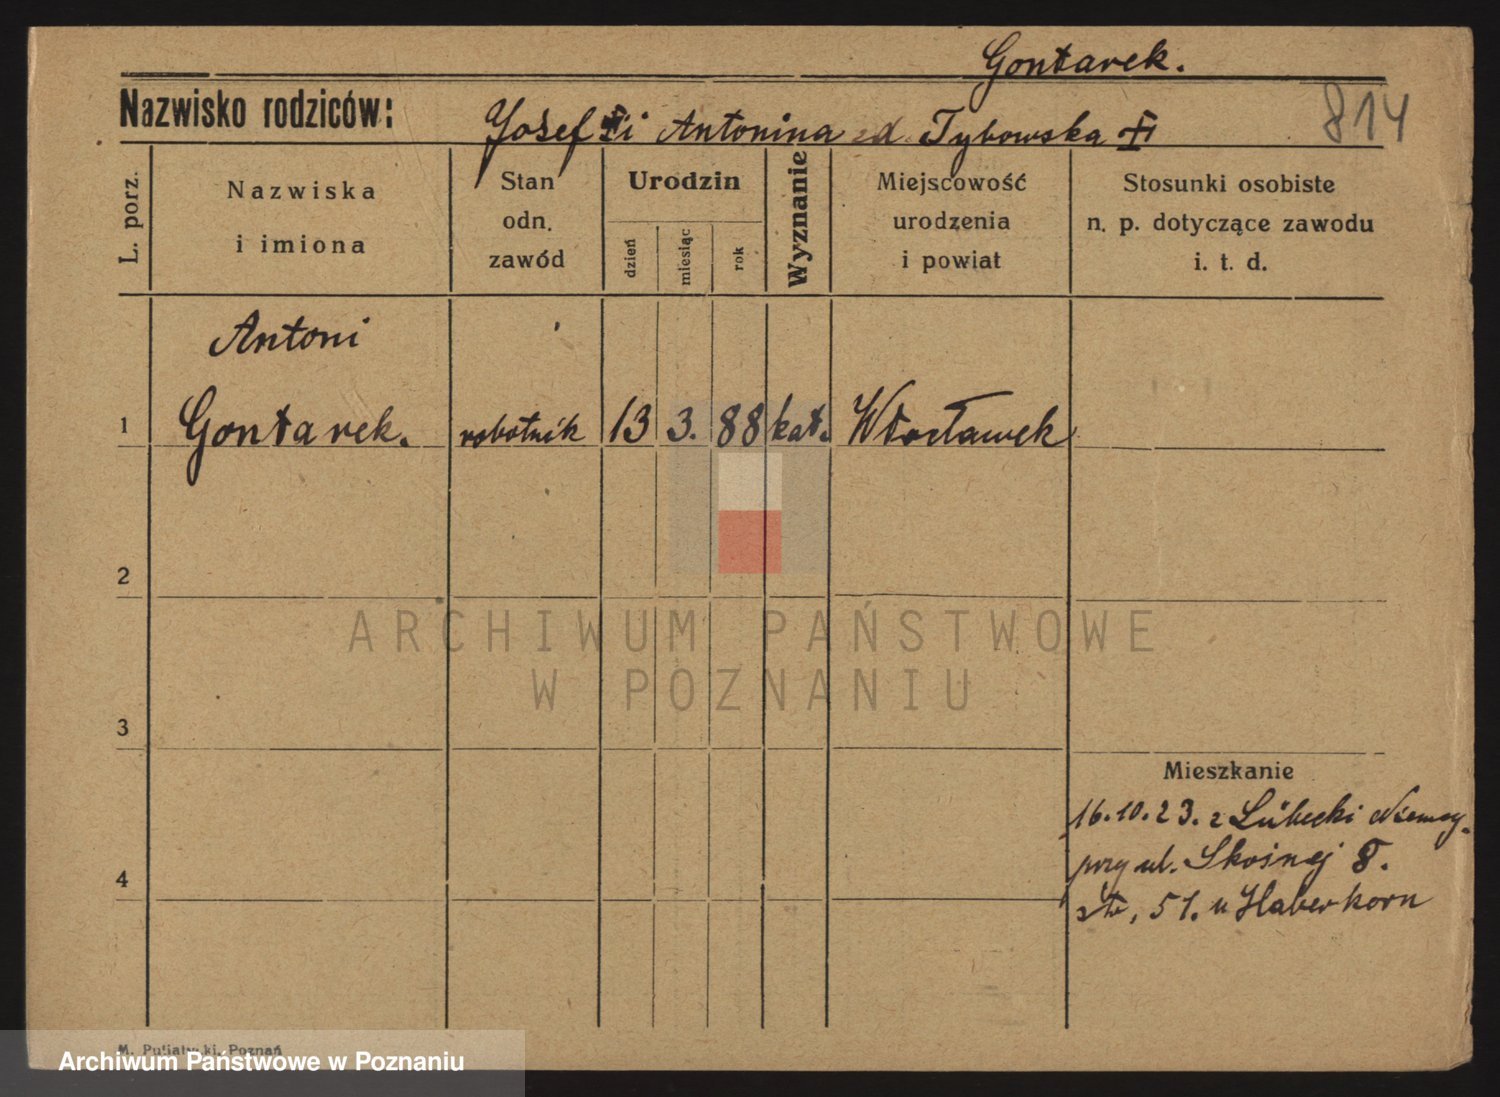 Gontarek.
814
Nazwisko rodziców: Josef i Antonina Tybowska
L. porz.
Nazwiska
i imiona
Stan
odn.
zawód
Urodzin
dzień
miesiąc
rok
Wyznanie
Miejscowość
urodzenia
i powiat
Stosunki osobiste
n. p. dotyczące zawodu
i. t. d.
Antoni
1 Gontarek. robotnik 13 3. 88 kat. Włocławek
2
ARCHIWUM PAŃSTWOWE
W POZNANIU
3
Mieszkanie
16.10.23. z Lübecki
przy ul. Skośnej 8.
4
str, 51. u Haberkorn
M. Putiatycki, Poznań
Archiwum Państwowe w Poznaniu